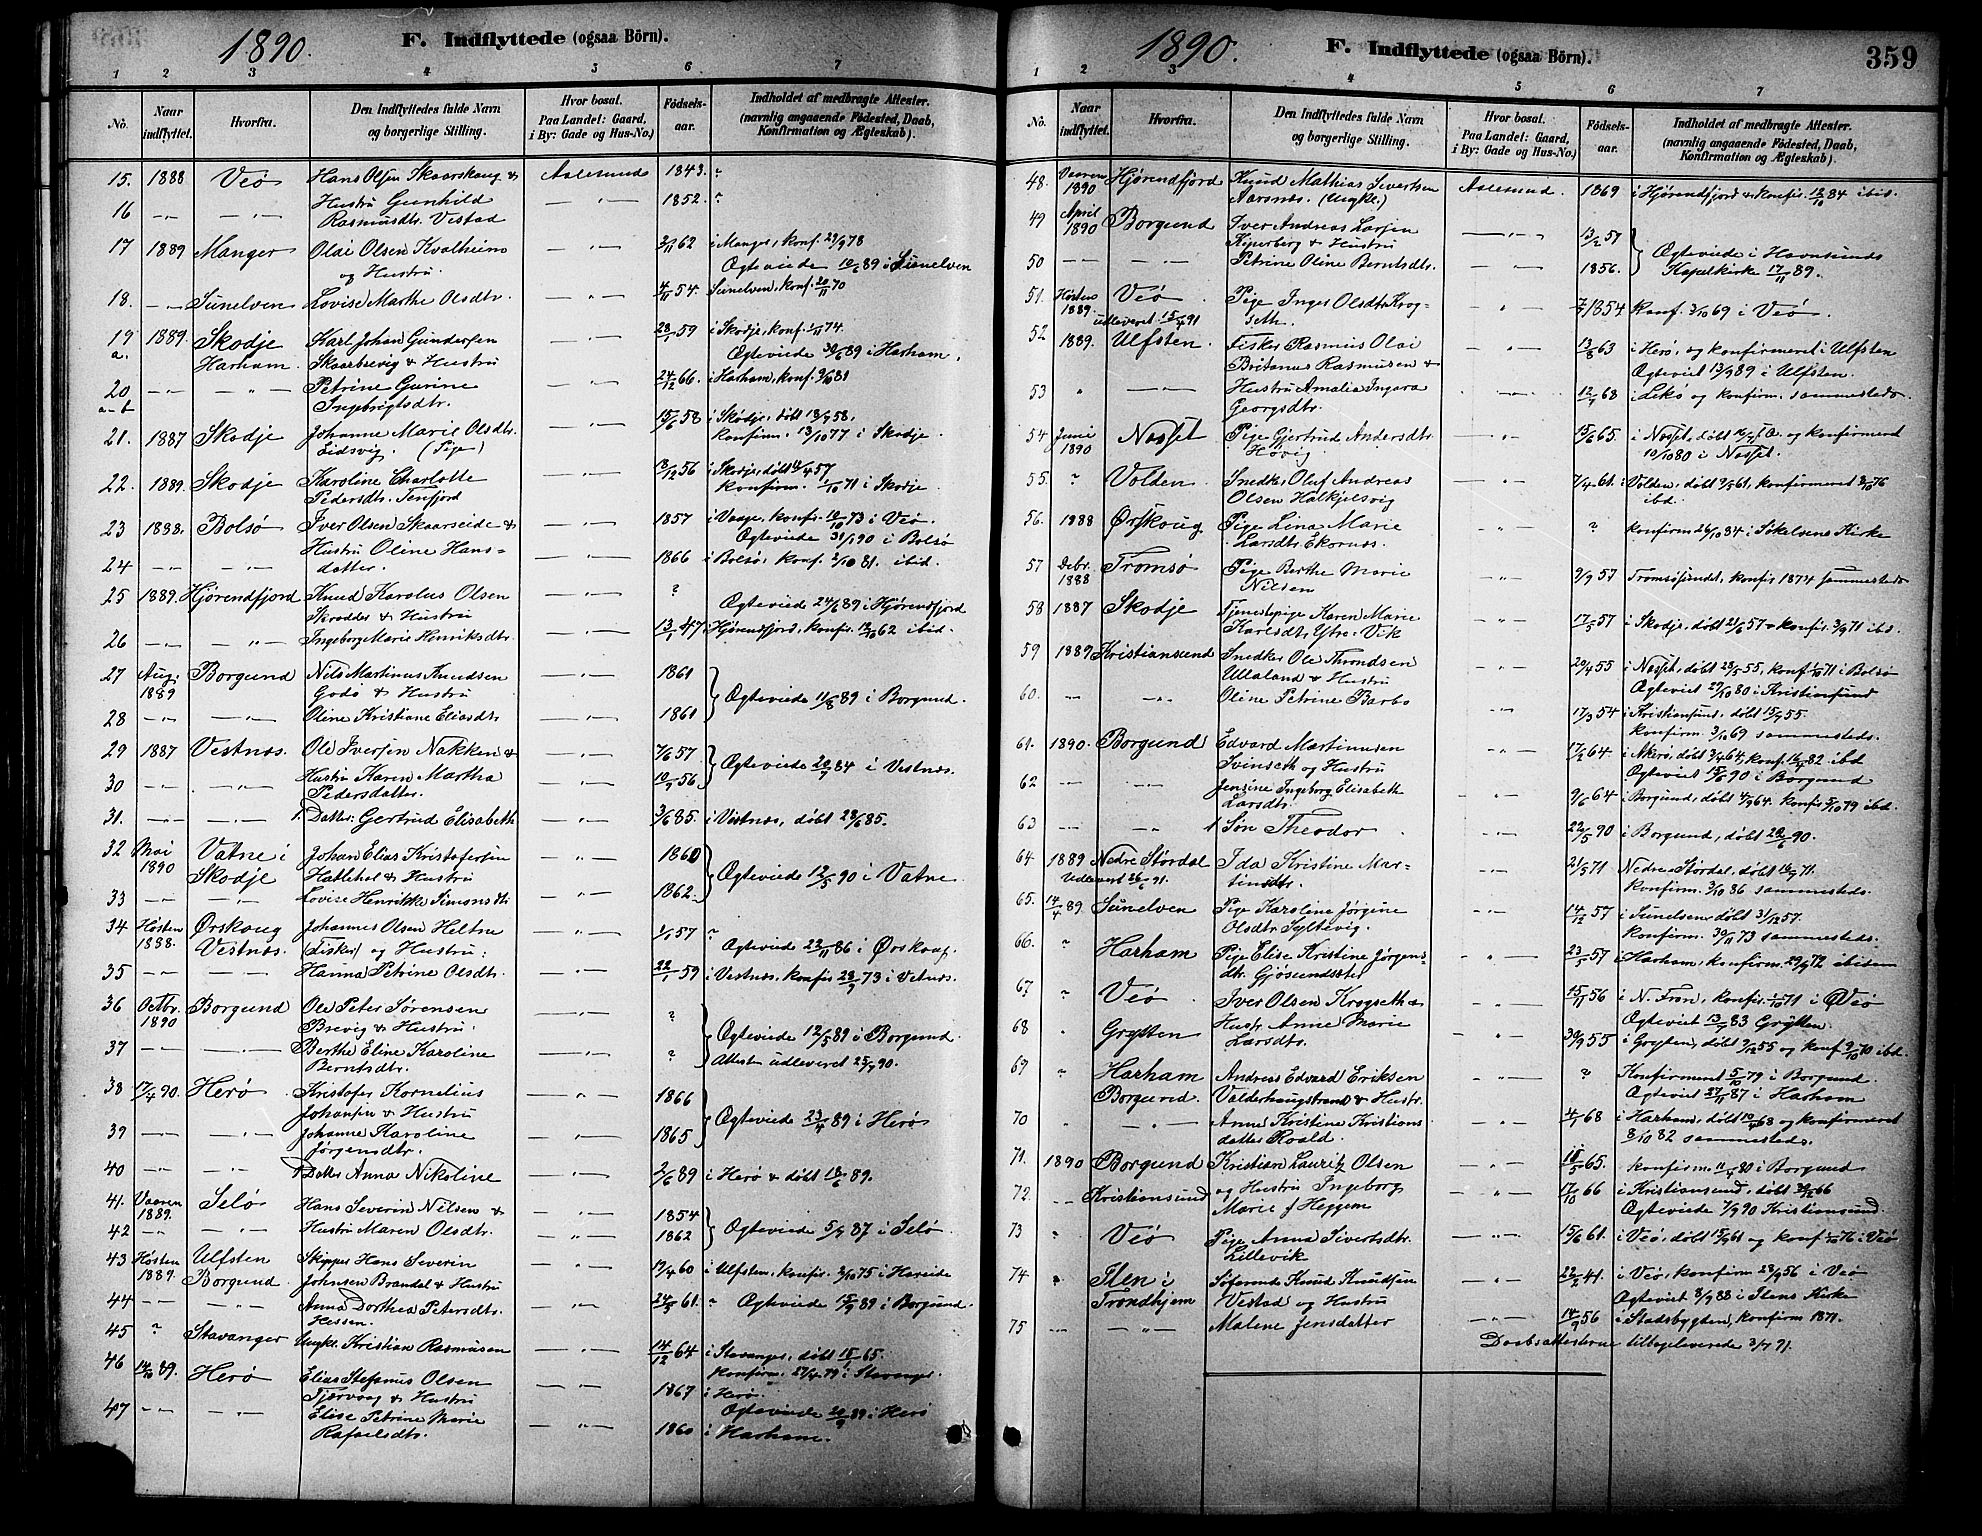 1890.
F. Indflyttede (ogsaa Börn).
1 2 3 4 5 6 7
No. Naar indflyttet. Hvorfra. Den Indflyttedes fulde Navn og borgerlige Stilling. Hvor bosat. Paa Landet: Gaard, i By: Gade og Hus-No.) Födsels-aar. Indholdet af medbragte Attester. (navnlig angaaende Födested, Daab, Konfirmation og Ægteskab).
15. 1888 Veø Hans Olsen Skaarskoug & Aalesund 1843. ?
16 -"- -"- Hustru Gunhild -"- 1852. ?
Rasmusdtr. Vestad
17 1889 Manger Olai Olsen Kvalheim -"- 2/11 62 i Manger, konf. 29/9 78
og Hustru Ægteviede 10/6 89 i Sunelven
18. -"- Sunelven Lovise Marthe Olsdtr. -"- 4/11 54 Sunelven, konf. 20/11 70
19 a. 1889. Skodje Karl Johan Gundersen -"- 28/1 59 i Skodje, konf. 1/11 74.
Harham. Skaarbrevig & Hustru Ægteviede 30/6 89 i Harham.
20 a-b -"- -"- Petrine Gurine -"- 24/12 66. i Harham, konf. 9/10 81
Ingebrigtsdtr.
21. 1887 Skodje Johanne Marie Olsdtr. -"- 15/6 58 i Skodje, døbt 18/7 58,
Eidsvig. (Pige) konfirm. 13/10 77 i Skodje.
22. 1889. Skodje Karoline Charlotte -"- 13/12 56 i Skodje, døbt 4/4 57
Pedersdtr. konfirm. 1/10 71 i Skodje.
23 1888. Bolsø Iver Olsen Skaarseide & -"- 1857 i Vaage, konfir. 10/10 73 i Veø.
Hustru Oline Hans- Ægteviede 31/1 90 i Bolsø
24 -"- -"- datter. -"- 1866 i Bolsø, konf. 2/10 81. ibid.
25 1889. Hjørendfjord Knud Karolus Olsen -"- ?
Skrædder & Hustru Ægteviede 24/6 89 i Hjørendfjord
26 -"- -"- Ingeborg Marie Henriksdtr. -"- 13/1 47 Hjørendfjord, konfir. 12/10 62 ibid.
27 Aug. 1889 Borgund Nils Martinus Knudsen -"- 1861
Godø & Hustru Ægteviede 11/8 89 i Borgund.
28 -"- -"- Oline Kristiane Eliasdtr. -"- 1861
29 1887 Vestnæs. Ole Iversen Nakken & -"- 7/6 57
Hustru Karen Martha Ægteviede 20/7 84 i Vestnæs.
30 -"- -"- Pedersdatter. -"- 10/9 56
31. -"- -"- 1. Datter: Gertrud Elisabeth -"- 3/6 85. i Vestnæs, døbt 28/6 85.
32 Mai 1890 Vatne i Johan Elias Kristofersen -"- 1860
Skodje Hatlehol & Hustru Ægteviede 12/5 90 i Vatne.
33 -"- -"- Lovise Henrikke Simonsdtr. -"- 1862.
34 Høsten 1888. Ørskoug Johannes Olsen Heltne -"- 1/1 57 ?
Vestnæs. (Fisker) og Hustru: Ægteviede 23/11 86 i Ørskoug.
35 -"- -"- Hanna Petrine Olsdtr. -"- 22/1 59 i Vestnæs, konfir. 28/9 73 i Vetnæs.
36 Octbr. 1890 Borgund Ole Peter Sørensen -"- ?
Brevig & Hustru Ægteviede 12/5 89 i Borgund.
37 -"- -"- Berthe Eline Karoline -"- ? Attester udleveret 25/9 90.
Berntsdtr.
38 17/4 90. Herø Kristofer Kornelius -"- 1866
Johansen & Hustru Ægteviede 23/4 89 i Herø
39 -"- -"- Johanne Karoline -"- 1865
Jørgensdtr.
40 -"- -"- 1 Datter Anna Nikoline -"- 2/6 89 i Herø & døbt 18/6 89.
41. Vaaren 1889. Selø Hans Severin Nilsen & -"- 1854
42 -"- -"- Hustru Maren Olsdtr. -"- 1862 Ægteviede 5/7 87 i Selø
43 Høsten 1889. Ulfsten Skipper Hans Severin -"- 19/4 60 i Ulfsten, konfir. 3/10 75 i Hareide
Borgund. Johnsen Brandal & Hustru
44 -"- -"- Anna Dorthea Petersdtr. -"- 24/5 61. ? Ægteviede 15/9 89 i Borgund.
Hessen.
45 ? Stavanger Ungk. Kristian Rasmusen -"- 14/12 64 i Stavanger, døbt 15/1 65.
konfirm. 27/4 79 i Stavanger.
46 14/10 89. Herø Elias Stefanus Olsen -"- 1867 i Herø.
Tjørvaag & Hustru Ægteviede 20/9 89 i Herø
47 -"- -"- Elise Petrine Marie -"- 1860 i Harham.
Rafaelsdtr.
1890.
F. Indflyttede (ogsaa Börn).
359
1 2 3 4 5 6 7
No. Naar indflyttet. Hvorfra. Den Indflyttedes fulde Navn og borgerlige Stilling. Hvor bosat. Paa Landet: Gaard, i By: Gade og Hus-No.) Födsels-aar. Indholdet af medbragte Attester. (navnlig angaaende Födested, Daab, Konfirmation og Ægteskab).
48. Vaaren 1890 Hjørendfjord Knud Mathias Sivertsen Aalesund. 1869 i Hjørendfjord & konfir. 12/10 84 ibid.
Aarsnæs. (Ungk.)
49 April 1890 Borgund Iver Andreas Larsen -"- 13/2 57
Kiperberg & Hustru Ægteviede i Havnsunds
50 -"- -"- Petrine Oline Berntsdtr. -"- 1856. Kapelkirke 17/11 89.
51. Høsten 1889. Veø Pige Inger Olsdtr. Krog- -"- 7/7 1854 Konf. 3/10 69 i Veø.
udleveret 15/4 91 seth.
52 1889. Ulfsten. Fisker Rasmus Olai -"- 13/8 63 i Herø, og konfirmeret i Ulfsten
Britanus Rasmusen & Ægteviet 13/9 89 i Ulfsten.
53 " -"- Hustru Amalia Ingara -"- 12/7 68 i Lekø og konfirm. sammesteds.
Georgsdtr.
54 Juni 1890 Nosset Pige Gjertrud Andersdtr. -"- 15/6 65. i Nosset, døbt og konfirmeret
Høvig. 10/10 80 i Nosset.
55. ? Volden Snedker Oluf Andreas -"- 7/4 61. i Volden, døbt 7/5 61, konfirmeret 8/10 76
Olsen Halkjelsvig ibid.
56. 1888 Ørskoug Pige Lina Marie -"- ? konfirm. 26/10 84 i Søkelvens Kirke
Larsdtr. Ekornæs.
57 Debr. 1888 Tromsø Pige Berthe Marie -"- 9/9 57 Tromsøsundet, konfir. 1874 sammesteds
Nilsen
58 1887 Skodje Tjenestepige Karen Marie -"- 17/5 57 i Skodje, døbt 21/6 57 & konfir. 3/9 71 ibd.
Karlsdtr. Ytre-Vik
59 1889 Kristiansund Snedker Ole Throndsen -"- 20/4 55 i Nosset, døbt 28/5 55, konf. 1/10 71 i Bolsø
Ulleland & Hustru Ægteviet 29/10 80 i Kristiansund
60. -"- -"- Oline Petrine Barbo -"- 17/3 54 i Kristiansund, døbt 15/7 55.
konfirm. 3/10 69 sammesteds.
61. 1890. Borgund Edvard Martinusen -"- 17/2 64 i Akerø, døbt 3/4 64, konf. 16/4 82 ibd
Svinseth og Hustru Ægteviet 15/6 90 i Borgund
62 -"- -"- Jensine Ingeborg Elisabeth -"- 9/6 64 i Borgund, døbt 4/9 64. konfir. 5/10 79 ibd.
Larsdtr.
63 -"- -"- 1 Søn Theodor -"- 22/5 90 i Borgund, døbt 20/6 90.
64. 1889 Nedre Størdal Ida Kristine Mar- -"- 21/5 71 Nedre Størdal, døbt 16/7 71.
Udleveret 26/6 91. tinsdtr. konfirm. 3/10 86 sammesteds.
65. 14/4 89. Sunelven Pige Karoline Jørgine -"- 14/12 57 i Sunelven døbt 31/12 57.
Olsdtr Syltevig. konfirm. 30/11 73 sammesteds.
66. " Harham Pige Elise Kristine Jørgens- -"- 23/5 57 i Harham, konfirm. 29/9 72 ibidem
dtr. Gjøsundsæter
67 " Veø Iver Olsen Krogseth & -"- 15/11 56 i N. Fron, konfir. 1/10 71 i Veø
68 " Grytten Hustr. Anne Marie -"- Ægteviet 13/7 83 Grytten.
Larsdtr. 30/9 55 i Grytten, døbt 9/12 55 og konf. 9/10 70 ibd.
69 " Harham Andreas Edvard Eriksen -"- ? Konfirmeret 5/10 79 i Borgund
Borgund. Valderhaugstrand & Hustr. Ægteviet 27/11 87 i Harham
70 " -"- Anne Kristine Kristians -"- 4/1 68 i Harham, døbt 10/4 68 og konfirmeret
datter Roald. 8/10 82 sammesteds.
71. 1890 Borgund Kristian Lauritz Olsen -"- 18/5 65. konfirm. 11/4 80 i Borgund
72. -"- Kristiansund og Hustru Ingeborg -"- 17/10 66 i Kristiansund, døbt 66
Marie f Heggem Ægteviede 7/9 90 Kristiansund.
73 " Veø Pige Anna Sivertsdtr. -"- 15/6 61. i Veø, døbt 15/9 61 og konf. 1/10 76 i Veø
Lillevik
74 " Ilen i Søfarende Knud Knudsen -"- 22/2 41. i Veø, konfirm. 28/9 56 i Veø
Trondhjem Vestad og Hustru Ægteviet 8/9 88 i Ilens Kirke
75 -"- -"- Malene Jensdatter -"- 14/9 56 i Stadsbygden, konfirm 1871.
Daabsattesterne tilbageleverede 3/7 91.